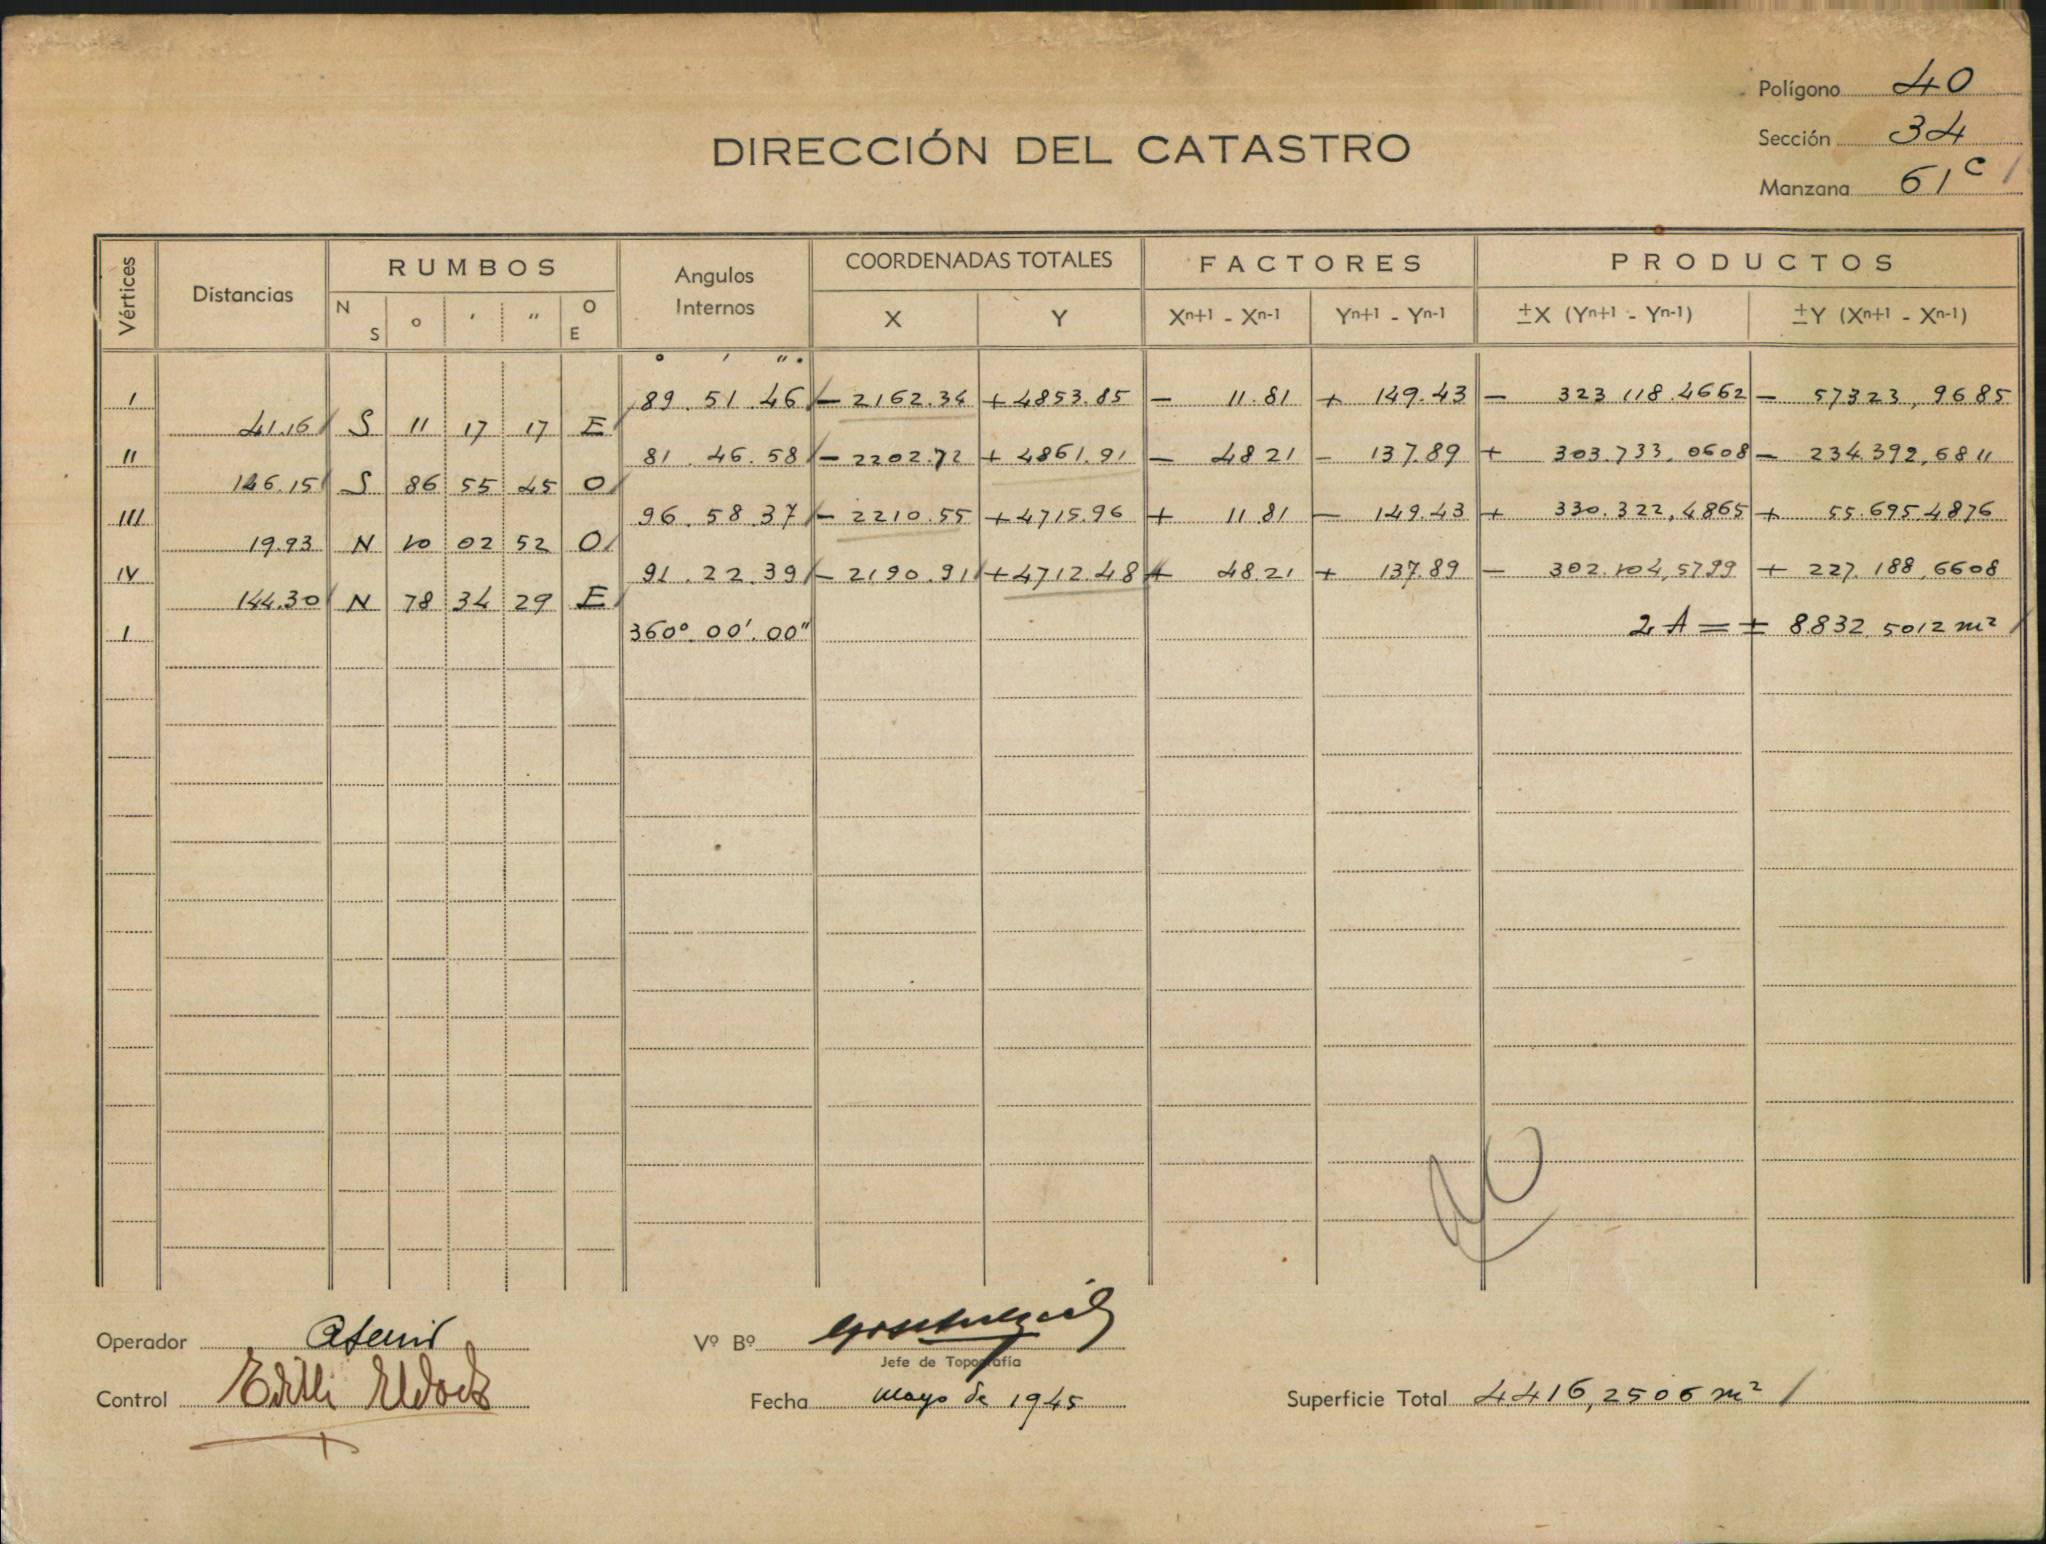 Polígono 40
DIRECCIÓN DEL CATASTRO
Sección 34
Manzana 61c
Vértices Distancias RUMBOS Angulos Internos COORDENADAS TOTALES FACTORES PRODUCTOS
N S o ' " O E X Y Xn+1 - Xn-1 Yn+1 - Yn-1 ±X (Yn+1 - Yn-1) ±Y (Xn+1 - Xn-1)
o ' "
I 89. 51. 46 - 2162.34 + 4853.85 - 11.81 + 149.43 - 323 118.4662 - 57323, 9685
41.16 S 11 17 17 E
II 81. 46. 58 - 2202.72 + 4861.91 - 48 21 - 137.89 + 303.733, 0608 - 234.392,6811
146.15 S 86 55 45 O
III 96. 58. 37 - 2210.55 + 4715.96 + 11.81 - 149.43 + 330.322,4865 + 55.695 4876
19.93 N 10 02 52 O
IV 91. 22. 39 - 2190.91 + 4712.48 + 48.21 + 137.89 - 302.104,5799 + 227. 188,6608
144.30 N 78 34 29 E
I 360°. 00'. 00" 2 A = ± 8.832, 5012 m²
Operador
Vº Bº
Jefe de Topografía
Control
Fecha Mayo de 1945
Superficie Total 4416,2506 m²